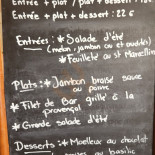 Entrée + plat / plat + dessert :
Entrée + plat + dessert : 22 €
Entrées : * Salade d'été
(melon, jambon cru et
* Feuilleté au St Marcellin
Plats : * Jambon braisé sauce
au poivre
* Filet de Bar grillé à la
provençal
* Grande salade d'été
Desserts : * Moelleux au chocolat
au basilic